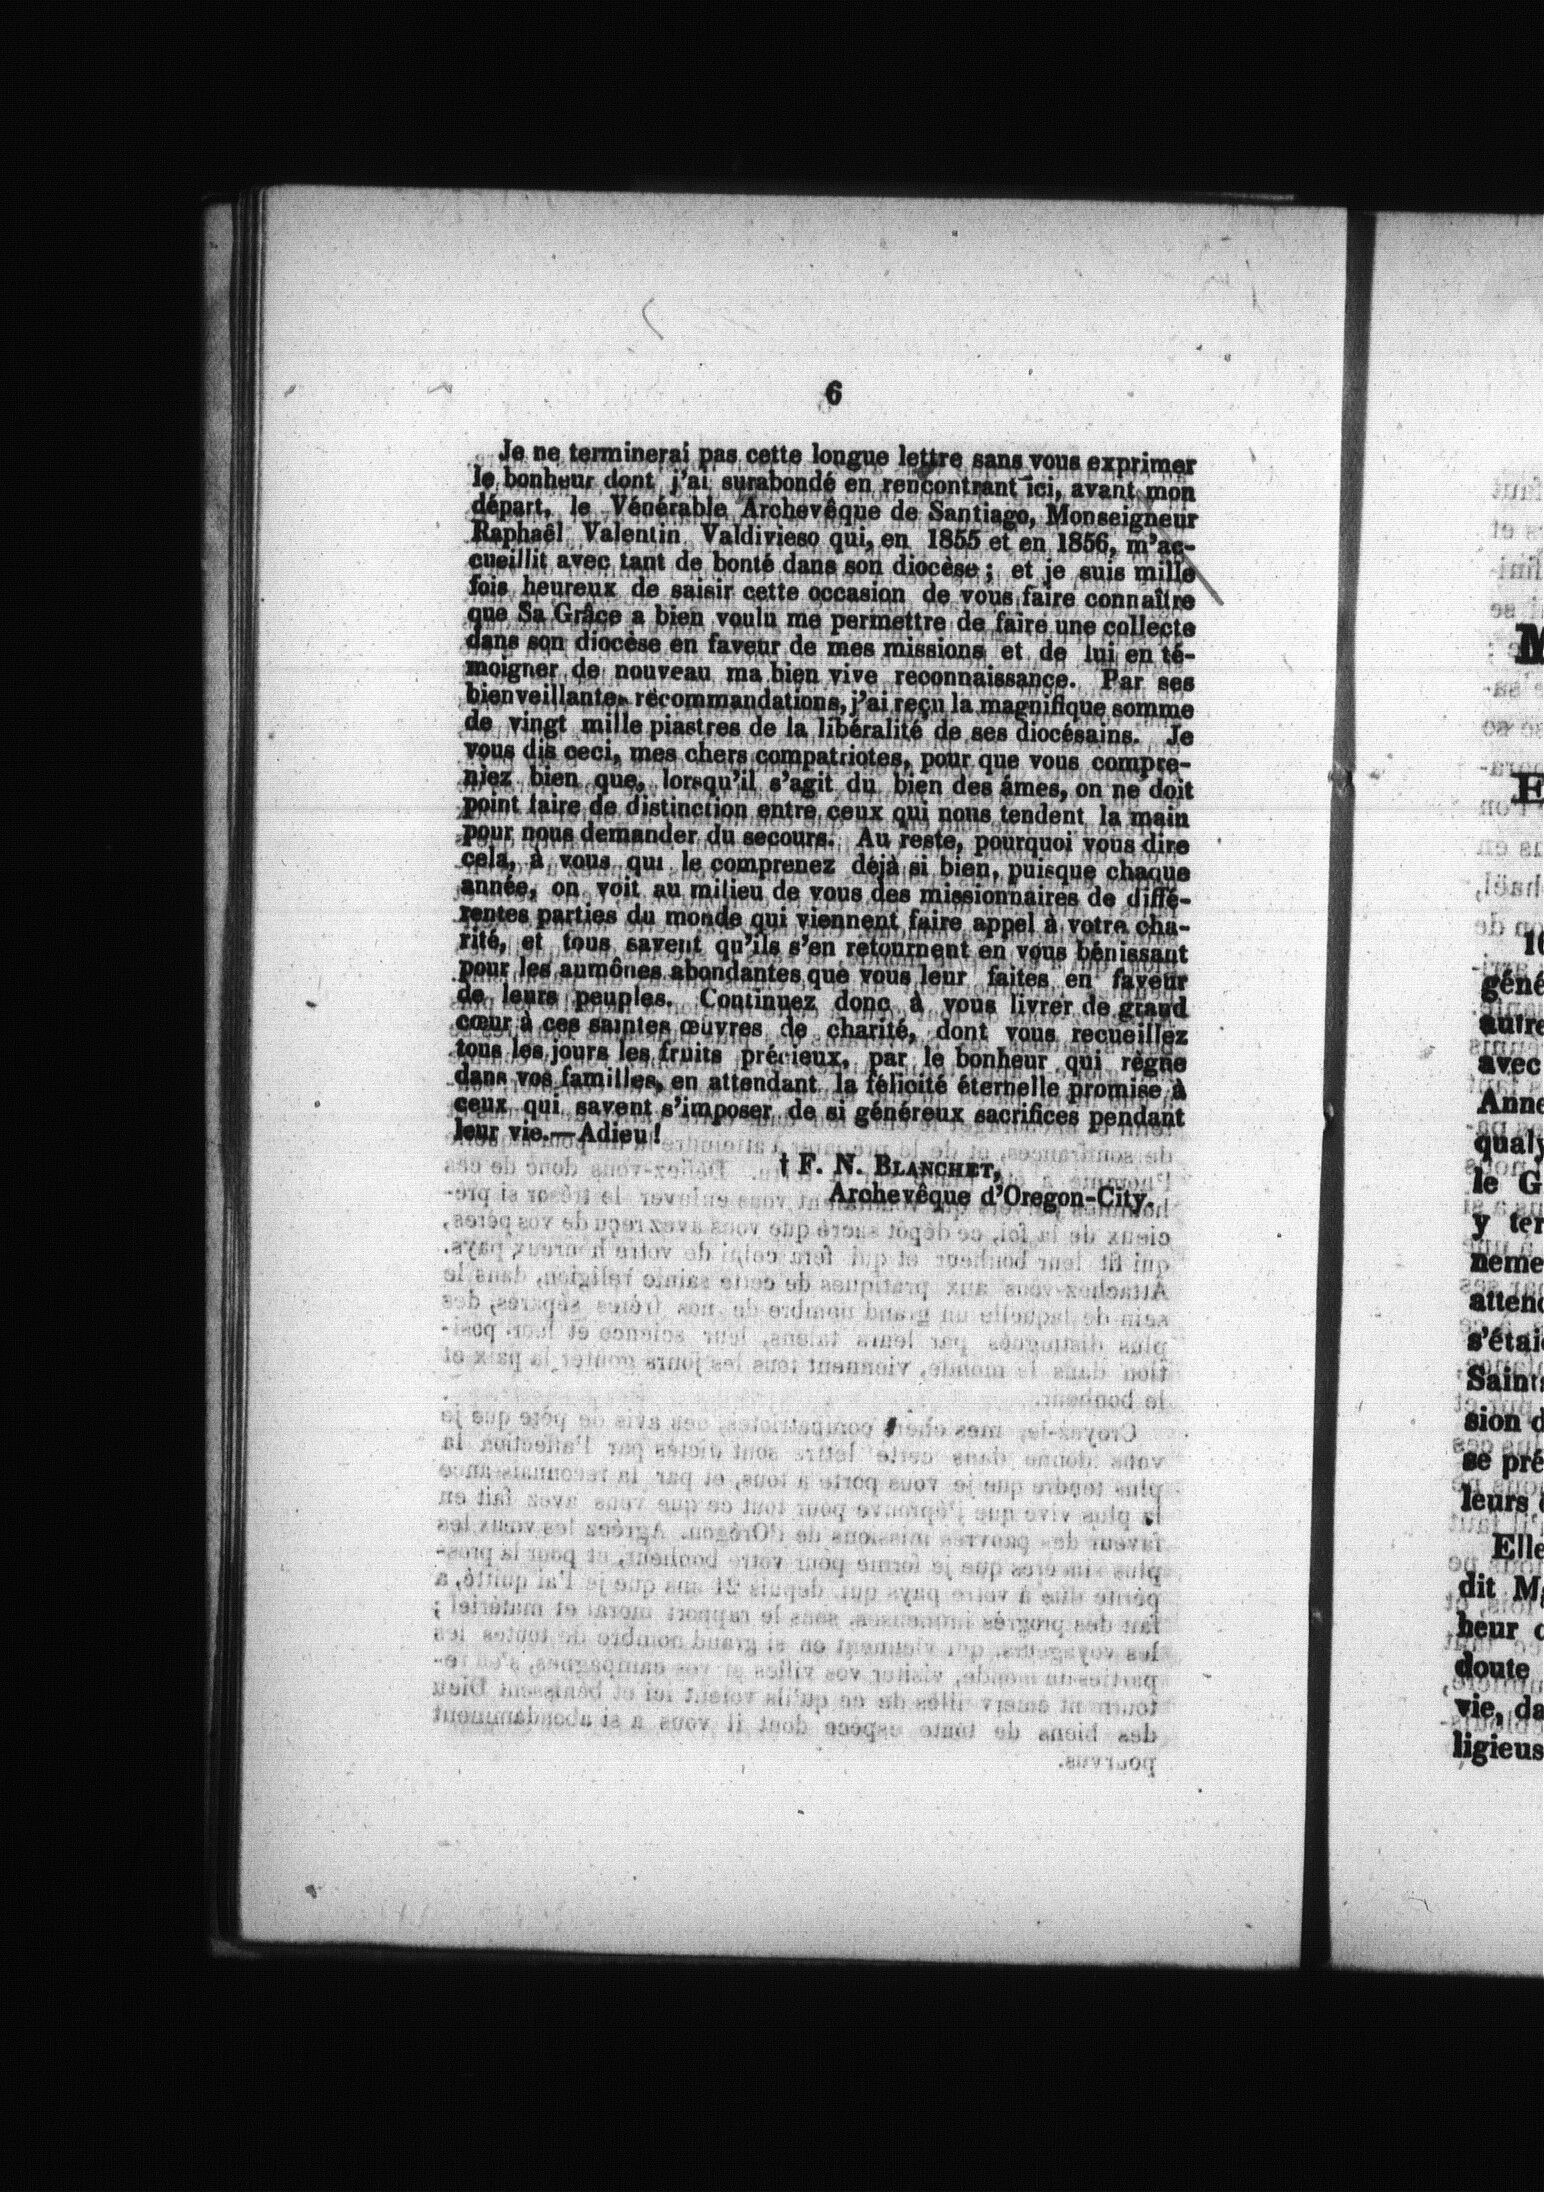 6
Je ne terminerai pas cette longue lettre sans vous exprimer
le bonheur dont j'ai surabondé en rencontrant ici, avant mon
départ, le Vénérable Archevêque de Santiago, Monseigneur
Raphaêl Valentin Valdivieso qui, en 1855 et en 1856, m'ac-
cueillit avec tant de bonté dans son diocèse; et je suis mille
fois heureux de saisir cette occasion de vous faire connaître
que Sa Grâce a bien voulu me permettre de faire une collecte
dans son diocèse en faveur de mes missions et de lui en té-
moigner de nouveau ma bien vive reconnaissance. Par ses
bienveillantes recommandations, j'ai reçu la magnifique somme
de vingt mille piastres de la libéralité de ses diocésains. Je
vous dis ceci, mes chers compatriotes, pour que vous compre-
niez bien que, lorsqu'il s'agit du bien des âmes, on ne doit
point faire de distinction entre ceux qui nous tendent la main
pour nous demander du secours. Au reste, pourquoi vous dire
cela, à vous qui le comprenez déjà si bien, puisque chaque
année, on voit au milieu de vous des missionnaires de diffé-
rentes parties du monde qui viennent faire appel à votre cha-
rité, et tous savent qu'ils s'en retournent en vous bénissant
pour les aumônes abondantes que vous leur faites en faveur
de leurs peuples. Continuez donc à vous livrer de grand
cœur à ces saintes œuvres de charité, dont vous recueillez
tous les jours les fruits précieux, par le bonheur qui règne
dans vos familles, en attendant la félicité éternelle promise à
ceux qui savent s'imposer de si généreux sacrifices pendant
leur vie.—Adieu!
† F. N. BLANCHET,
Archevêque d'Oregon-City.
M
E
géné
autre
avec
Anne
qualy
le G
y ter
neme
atten
s'étai
Saint
sion d
se pré
leurs
Elle
dit M
heur
doute
vie, da
ligieus